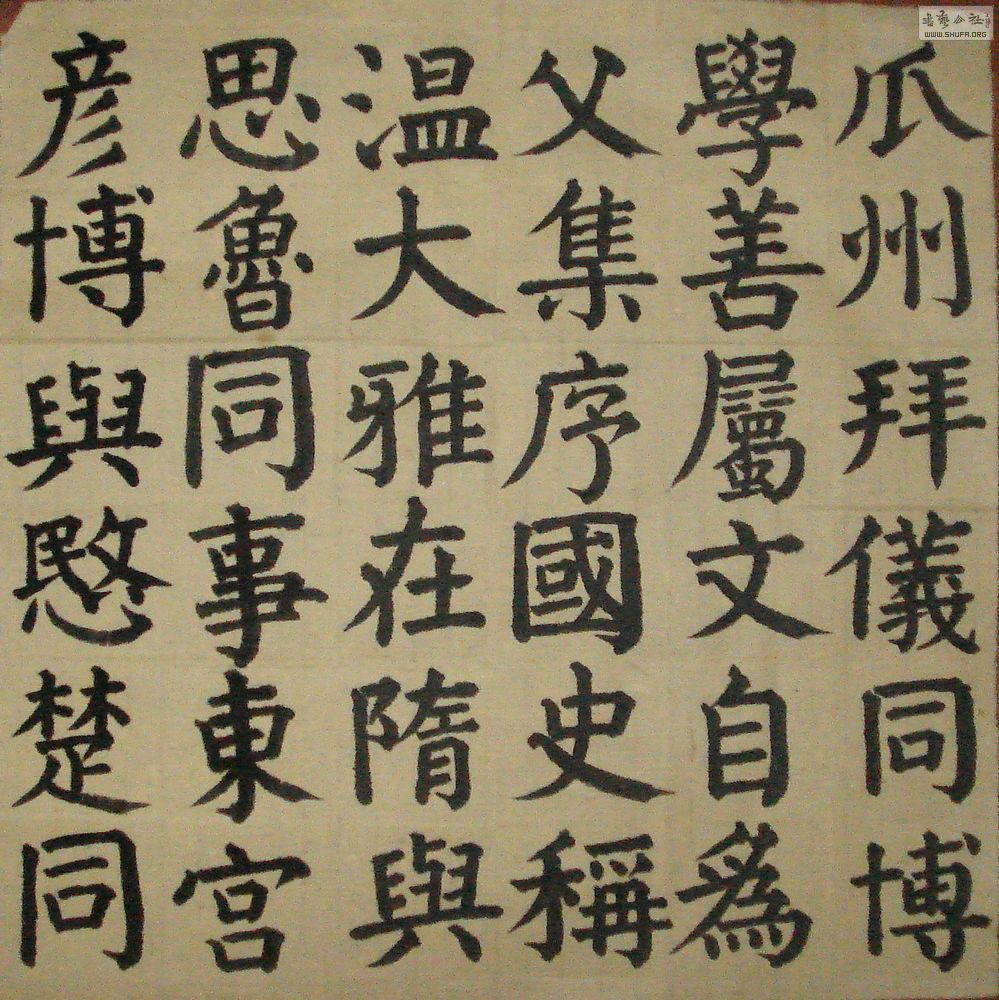 爪州拜儀同博
學善屬文自為
父集序國史稱
温大雅在隋與
思魯同事東宫
彦博與愍楚同
書藝公社
WWW.SHUFA.ORG